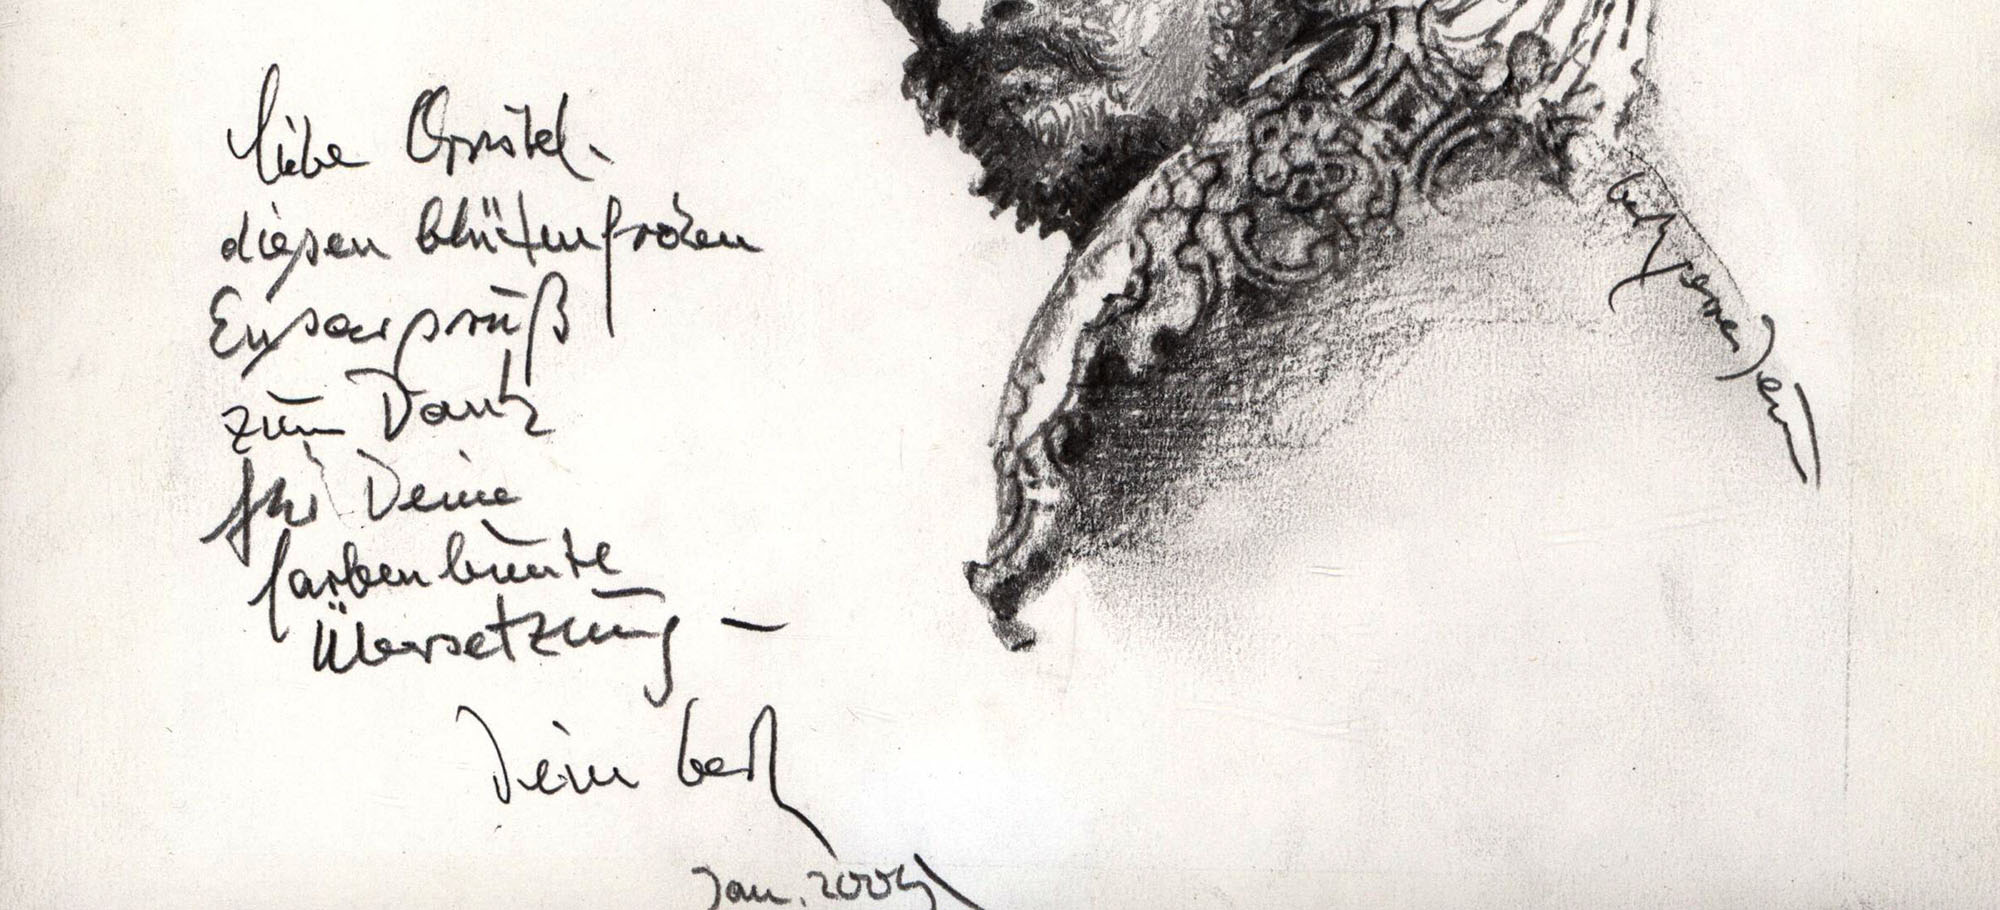 liebe Christel.
diesen blütenfrohen
Ensorgruß
zum Dank
für Deine
farbenbunte
Übersetzung –
Dein
Jan. 2005